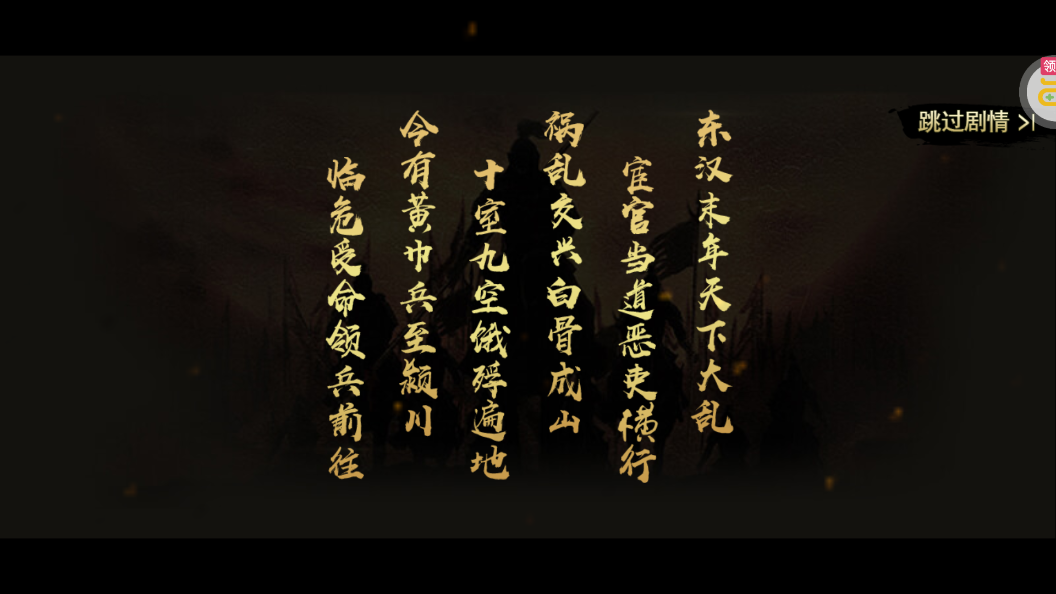 东汉末年天下大乱
宦官当道恶吏横行
祸乱交兴白骨成山
十室九空饿殍遍地
今有黄巾兵至颍川
临危受命领兵前往
跳过剧情 >|
领